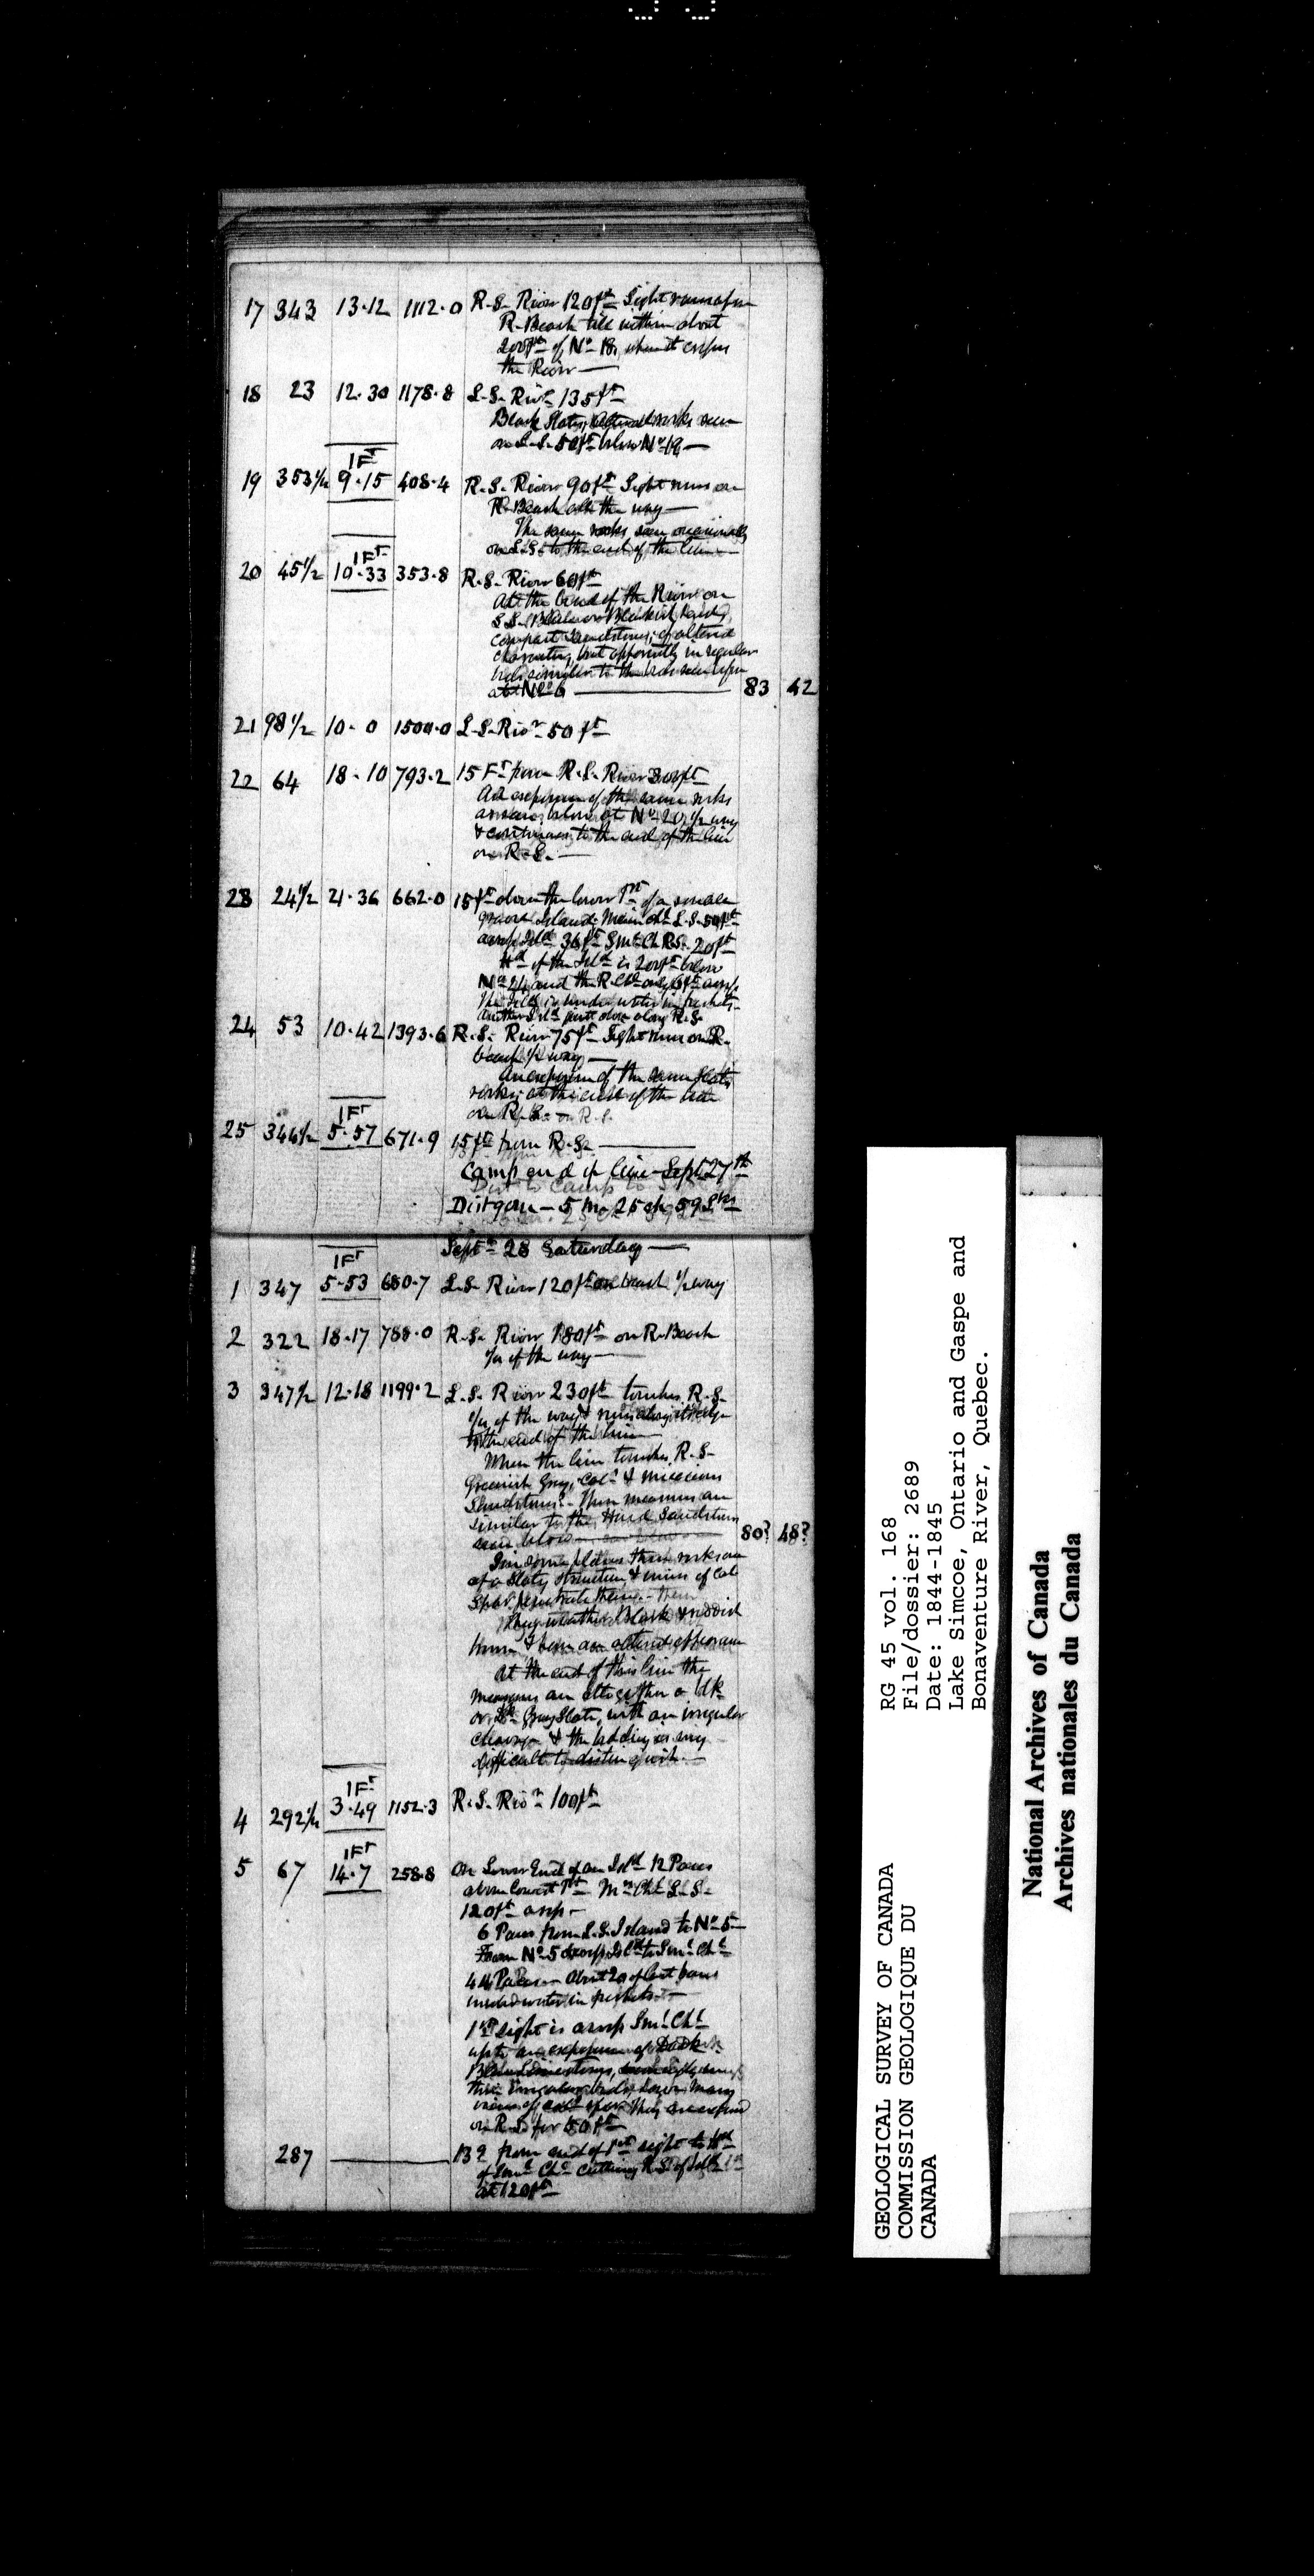 17 343 13·12 1112·0 R.S. River 120ft Sight runs upon
R. Beach till within about
200ft of No 18, when it crosses
the River —
18 23 12·30 1178·8 L.S. Rivr 135ft
Black Slaty, altered rocks seen
on L.S. 50ft below No 19 —
1Ft
19 353½ 9·15 408·4 R.S. River 90ft Sight runs on
R. Beach all the way —
The same rocks seen occasionally
on L.S. to the end of the line —
1Ft
20 45½ 10·33 353·8 R.S. River 60ft
At the bend of the River on
L.S. Black or Blackish hard,
compact Sandstones, of altered
character, but apparently in regular
beds similar to those seen upon
at No 6 — 83 42
21 98½ 10·0 1500·0 L.S. Rivr 50ft
22 64 18·10 793·2 15Ft from R.S. River 300ft
An exposure of the same rocks
as seen below at No 20, ½ way
& continues to the end of the line
on R.S. —
23 24½ 21·36 662·0 15ft above the lower Pt of a small
gravel Island. Main Chl L.S. 50ft
across Isld 36ft Sml Ch R.S. 20ft
Hd of the Isld is 200ft below
No 24 and the R. Chl only 6ft across
The Isld is under water in freshets
another Isld just above along R.S.
24 53 10·42 1393·6 R.S. River 75ft Sight runs on R.
beach ½ way —
An exposure of the same Slaty
rocks at the end of the line
on R.S. —
1Ft
25 344½ 5·57 671·9 15ft from R.S. —
Camp end of line Sept 27th
Dist gone — 5 m. 25 ch. 59 Lks
Septr 28 Saturday —
1Ft
1 347 5·53 680·7 L.S. River 120ft on beach ½ way
2 322 18·17 788·0 R.S. River 180ft on R. Beach
of the way —
3 347½ 12·18 1199·2 L.S. River 230ft touches R.S.
of the way & runs along its edge
to the end of the line
When the line touches R.S.
Greenish Gray, Calc & micaceous
Sandstones. These measures are
similar to the Hard Sandstones
seen below — 80? 48?
In some places these rocks are
of a Slaty structure & veins of Calc
Spar penetrate them.
They weather Black & reddish
brown & have an altered appearance
At the end of this line the
measures are altogether a blk
or Dk Gray Slate, with an irregular
cleavage & the bedding is very
difficult to distinguish —
1Ft
4 292½ 3·49 1152·3 R.S. Rivr 100ft
1Ft
5 67 14·7 258·8 On Lower End of an Isld 12 Paces
above Lowest Pt Mn Chl L.S.
120ft across
6 Paces from L.S. Island to No 5
From No 5 across Isld to Sml Chl
44 Paces — About 20 of last paces
under water in freshets —
1st sight is across Sml Chl
up to an exposure of Dark
Limestones,
thin irregular beds & many
veins of calc spar. They are exposed
on R.S. for 50ft
287 — 132 from end of 1st sight to Hd
of Sml Chl cutting R.S. of Isld
at 120ft
GEOLOGICAL SURVEY OF CANADA
COMMISSION GEOLOGIQUE DU
CANADA
RG 45 vol. 168
File/dossier: 2689
Date: 1844-1845
Lake Simcoe, Ontario and Gaspe and
Bonaventure River, Quebec.
National Archives of Canada
Archives nationales du Canada